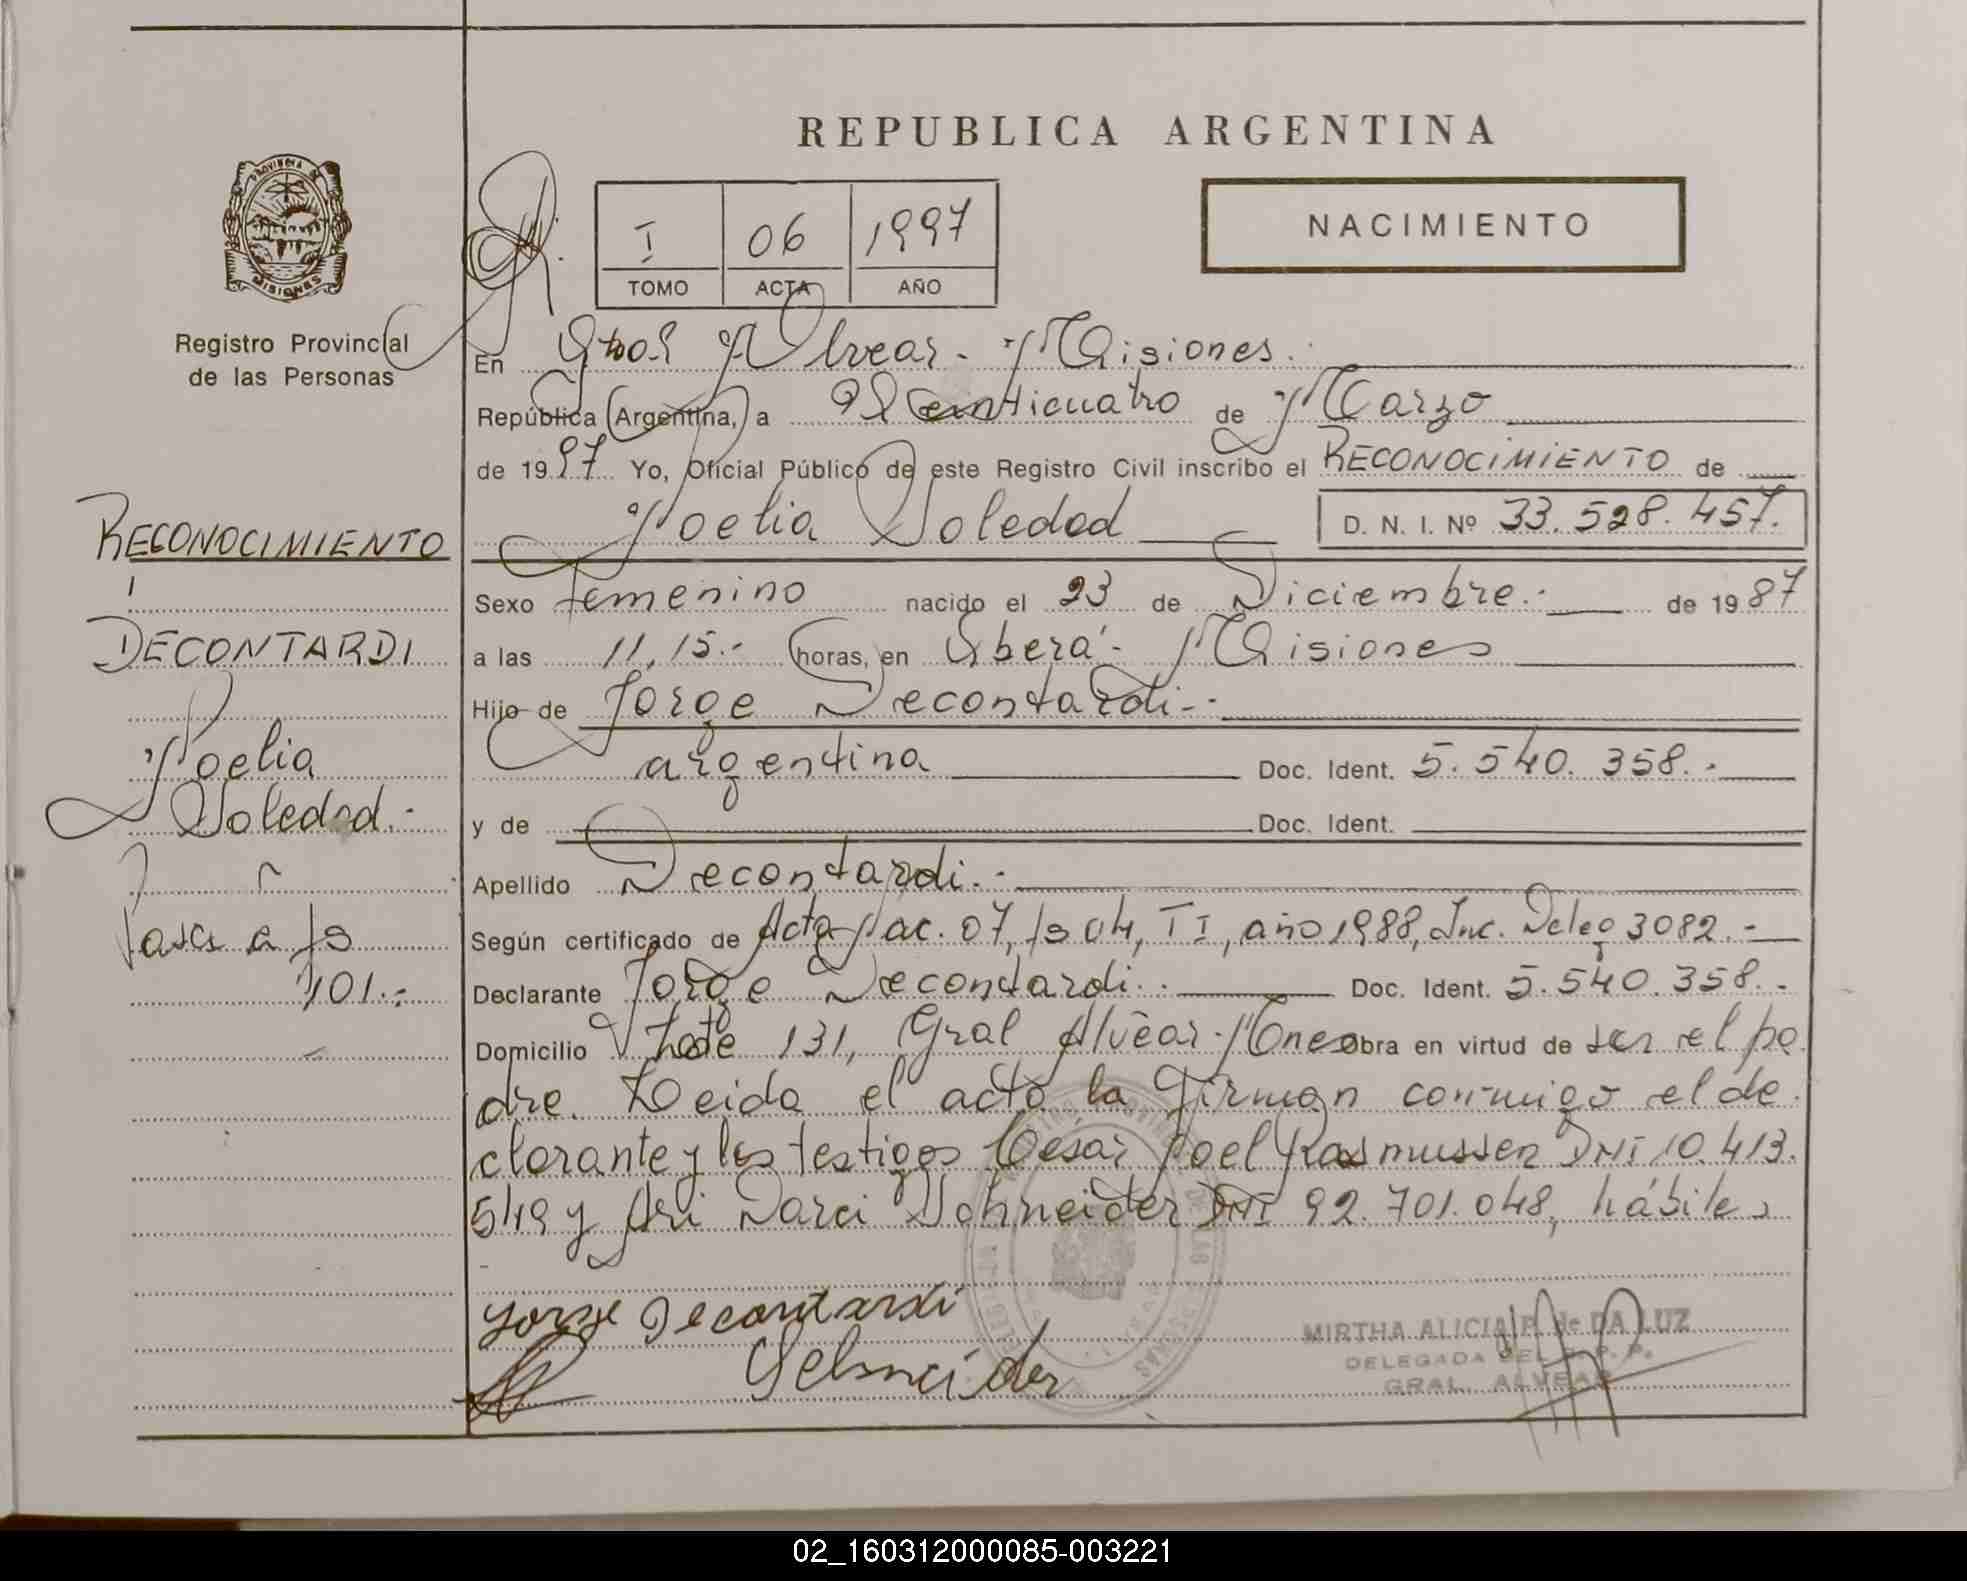 REPUBLICA ARGENTINA
PROVINCIA DE
MISIONES
Registro Provincial
de las Personas
I 06 1997
TOMO ACTA AÑO
NACIMIENTO
En Gral Alvear - Misiones.
República Argentina, a Veinticuatro de Marzo
de 1997 Yo, Oficial Público de este Registro Civil inscribo el RECONOCIMIENTO de
Noelia Soledad D. N. I. Nº 33.528.457.
RECONOCIMIENTO
DECONTARDI
Noelia
Soledad.-
Pasa a fs
101.-
Sexo femenino nacido el 23 de Diciembre.- de 1987
a las 11,15.- horas, en Oberá - Misiones
Hijo de Jorge Decontardi.-
argentina Doc. Ident. 5.540.358.-
y de Doc. Ident.
Apellido Decontardi.-
Según certificado de Acta Nac. 07, fs 04, T I, año 1988, Inc. Deleg 3082.-
Declarante Jorge Decontardi.- Doc. Ident. 5.540.358.-
Domicilio Lote 131, Gral Alvear - Mnes Obra en virtud de ser el pa
dre. Leida el acta la firman conmigo el de
clarante y los testigos César Noel Rasmussen DNI 10.413.
549 y Ari Darci Schneider DNI 92.701.048, hábiles
Jorge Decontardi
Schneider
MIRTHA ALICIA P. de DA LUZ
DELEGADA DEL R. P. P.
GRAL. ALVEAR
02_160312000085-003221